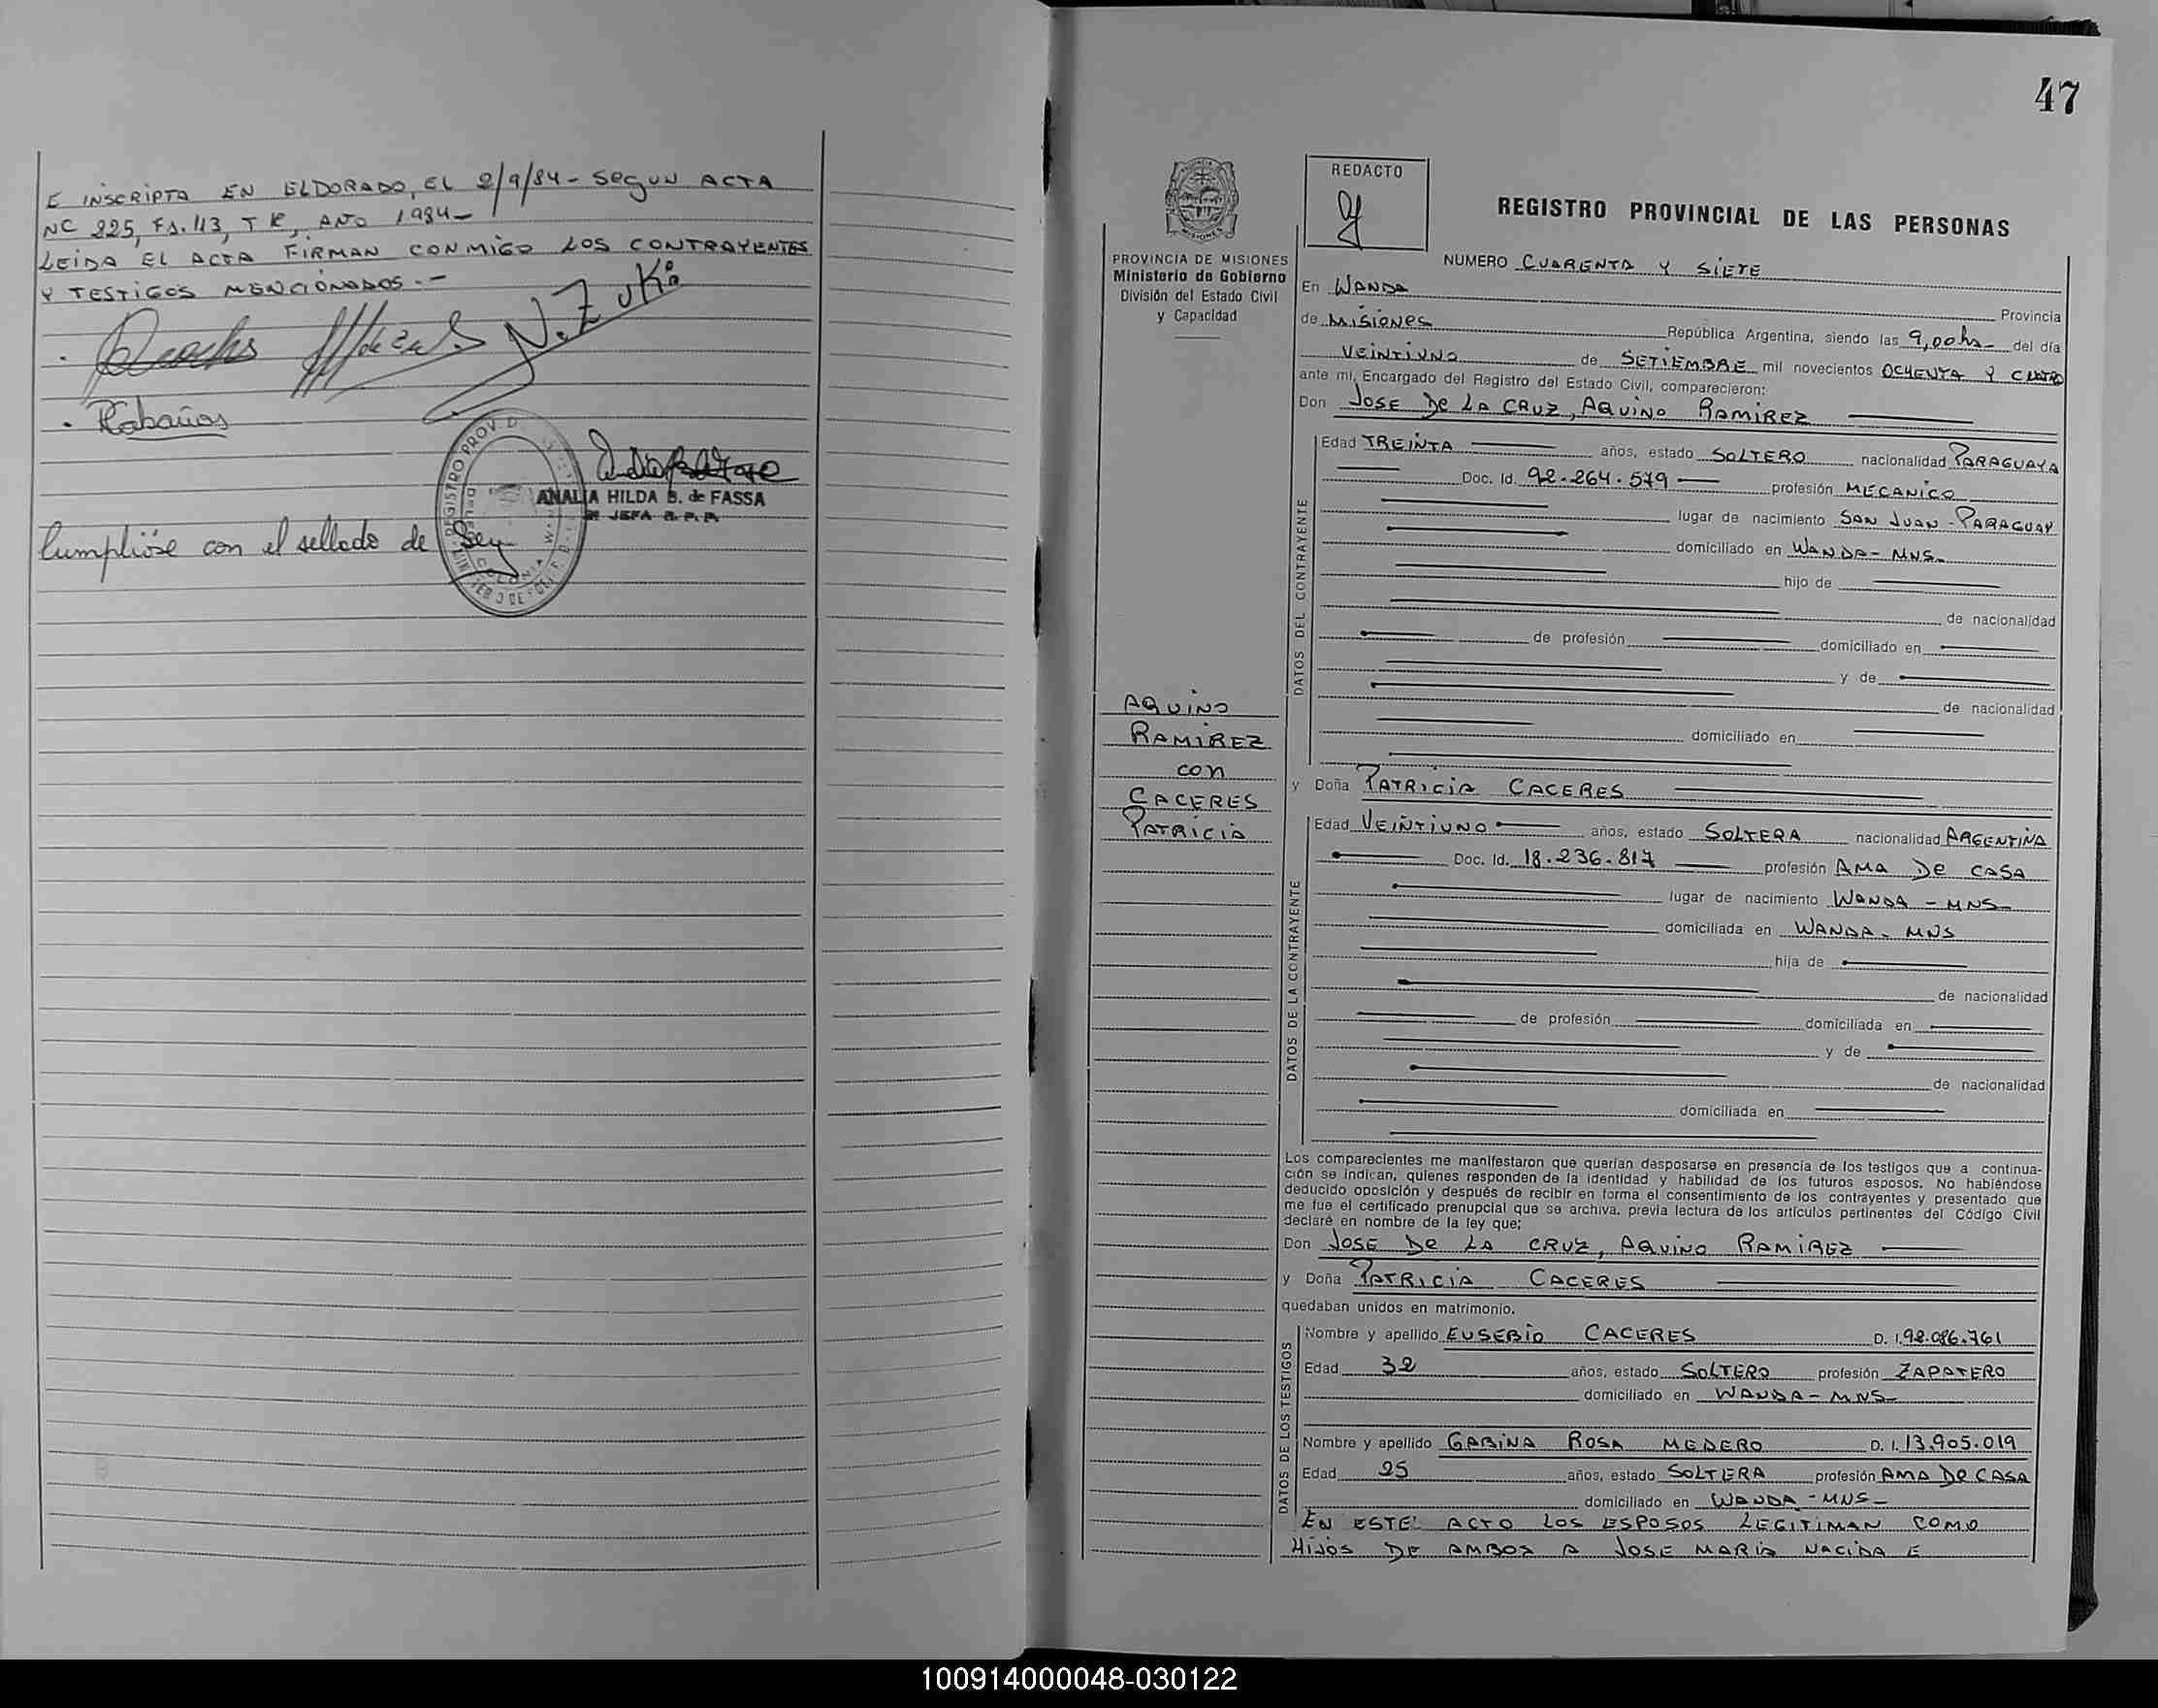 E INSCRIPTA EN ELDORADO, EL 2/9/84 - SEGUN ACTA
NC 225, Fs. 113, T , AÑO 1.984-
LEIDA EL ACTA FIRMAN CONMIGO LOS CONTRAYENTES
Y TESTIGOS MENCIONADOS.-
N. Zuk
ANALIA HILDA B. de FASSA
JEFA R. P. P.
Cumplióse con el sellado de Ley
47
REDACTO
REGISTRO PROVINCIAL DE LAS PERSONAS
PROVINCIA DE MISIONES
Ministerio de Gobierno
División del Estado Civil
y Capacidad
NUMERO CUARENTA Y SIETE
En WANDA Provincia
de MISIONES República Argentina, siendo las 9,00hs- del día
VEINTIUNO de SETIEMBRE mil novecientos OCHENTA Y CUATRO
ante mí, Encargado del Registro del Estado Civil, comparecieron:
Don JOSE DE LA CRUZ, AQUINO RAMIREZ
DATOS DEL CONTRAYENTE
Edad TREINTA años, estado SOLTERO nacionalidad PARAGUAYA
Doc. Id. 92.264.579 profesión MECANICO
lugar de nacimiento SAN JUAN - PARAGUAY
domiciliado en WANDA - MNS-
hijo de
de nacionalidad
de profesión domiciliado en
y de
de nacionalidad
domiciliado en
AQUINO
RAMIREZ
con
CACERES
PATRICIA
y Doña PATRICIA CACERES
DATOS DE LA CONTRAYENTE
Edad VEINTIUNO años, estado SOLTERA nacionalidad ARGENTINA
Doc. Id. 18.236.817 profesión AMA DE CASA
lugar de nacimiento WANDA - MNS-
domiciliada en WANDA - MNS
hija de
de nacionalidad
de profesión domiciliada en
y de
de nacionalidad
domiciliada en
Los comparecientes me manifestaron que querían desposarse en presencia de los testigos que a continua-
ción se indican, quienes responden de la identidad y habilidad de los futuros esposos. No habiéndose
deducido oposición y después de recibir en forma el consentimiento de los contrayentes y presentado que
me fue el certificado prenupcial que se archiva, previa lectura de los artículos pertinentes del Código Civil
declaré en nombre de la ley que;
Don JOSE DE LA CRUZ, AQUINO RAMIREZ
y Doña PATRICIA CACERES
quedaban unidos en matrimonio.
DATOS DE LOS TESTIGOS
Nombre y apellido EUSEBIO CACERES D. I. 92.086.761
Edad 32 años, estado SOLTERO profesión ZAPATERO
domiciliado en WANDA - MNS-
Nombre y apellido GABINA ROSA MEDERO D. I. 13.905.019
Edad 25 años, estado SOLTERA profesión AMA DE CASA
domiciliado en WANDA - MNS-
EN ESTE ACTO LOS ESPOSOS LEGITIMAN COMO
HIJOS DE AMBOS A JOSE MARIA NACIDA E
100914000048-030122